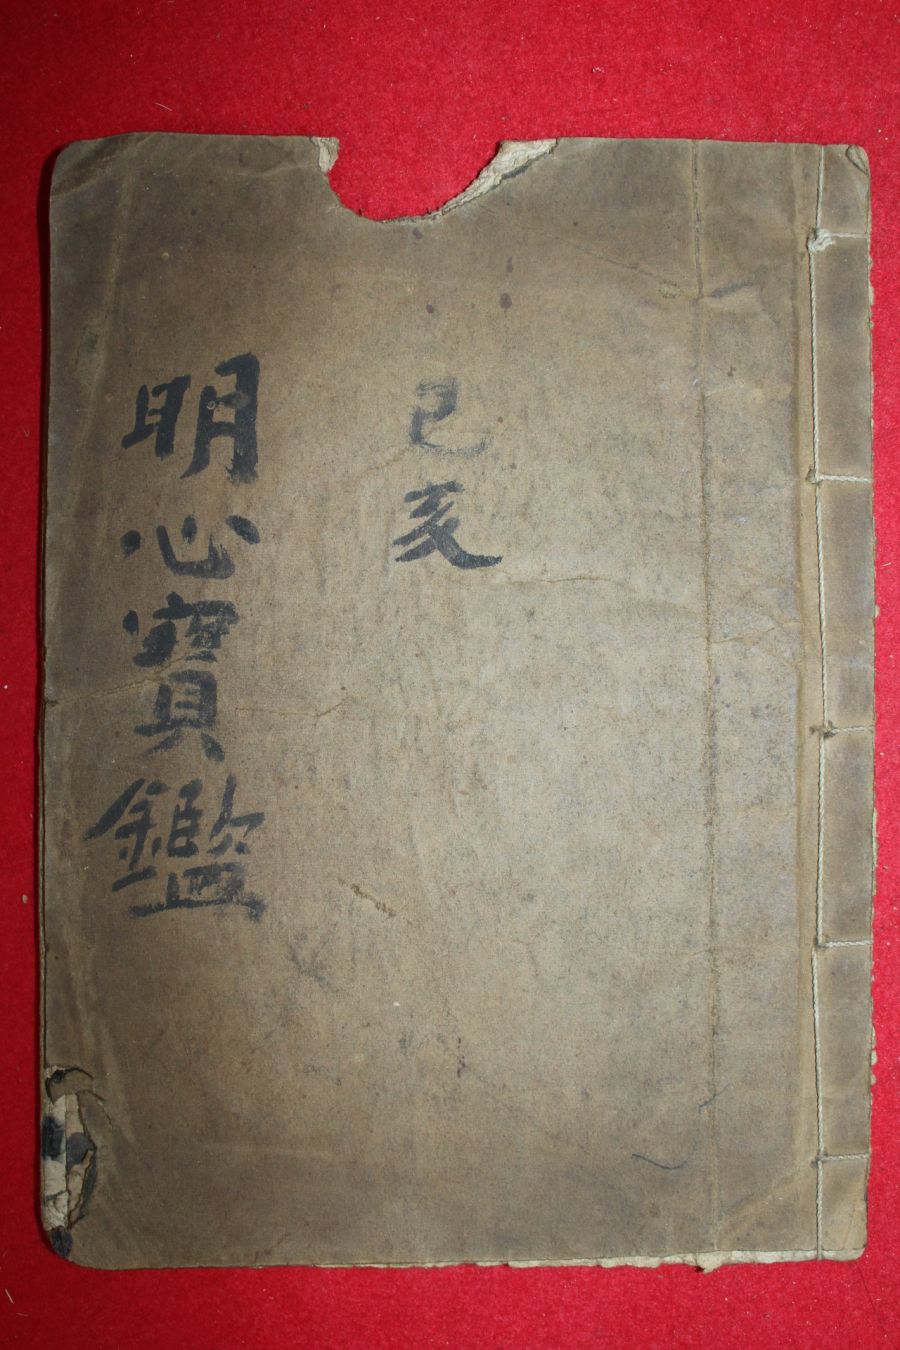 己亥
明心寶鑑